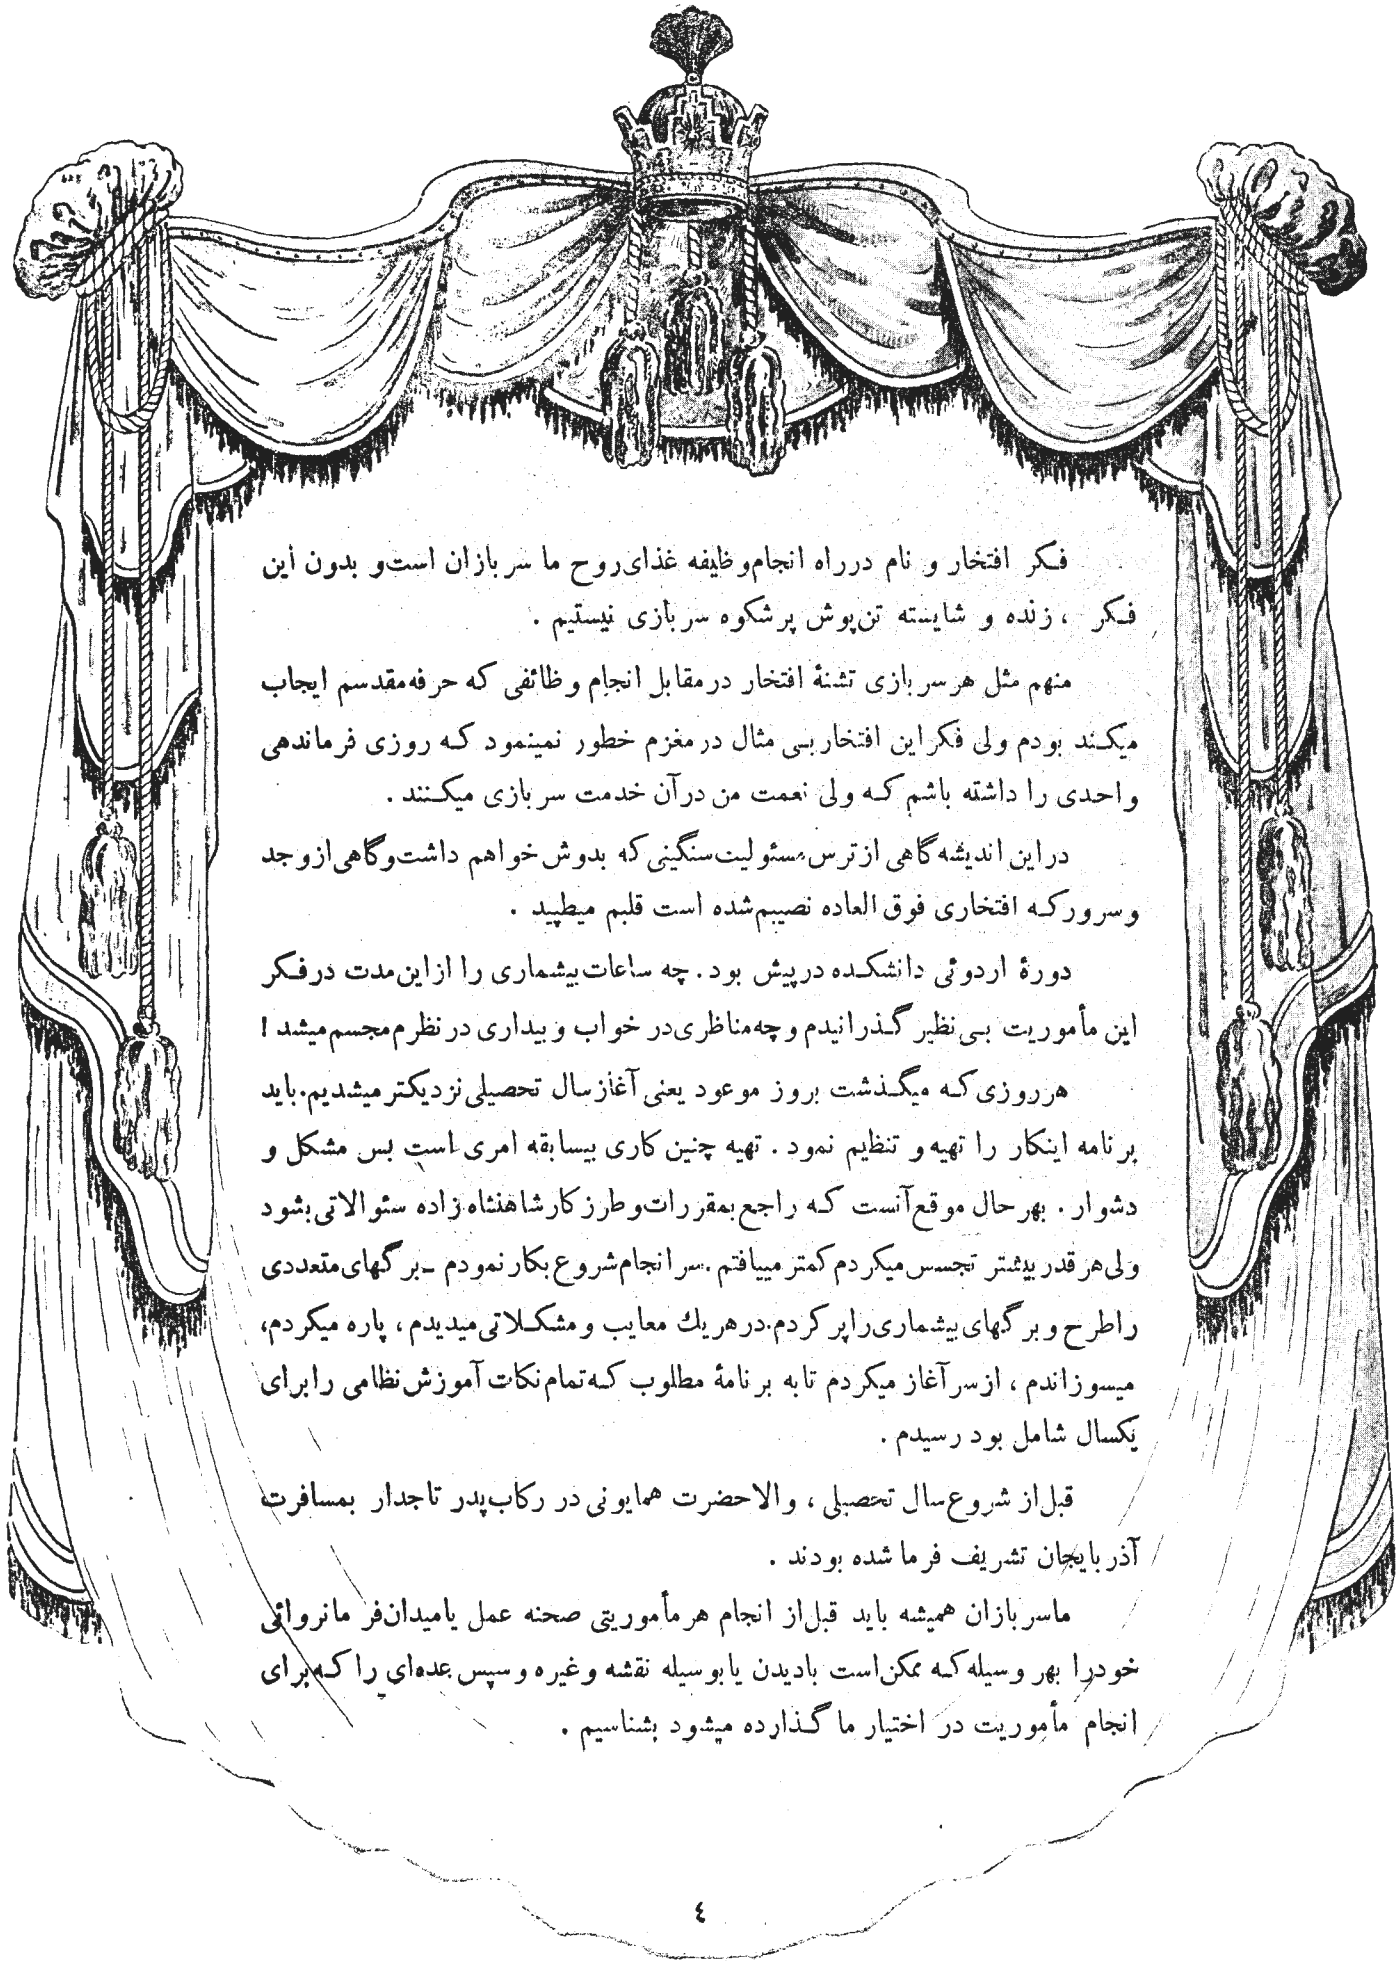 فکر افتخار و نام در راه انجام وظیفه غذای روح ما سربازان است و بدون این
فکر ، زنده و شایسته تن‌پوش پرشکوه سربازی نیستیم .
منهم مثل هر سربازی تشنهٔ افتخار در مقابل انجام وظائفی که حرفه مقدسم ایجاب
میکند بودم ولی فکر این افتخار بی مثال در مغزم خطور نمینمود که روزی فرماندهی
واحدی را داشته باشم که ولی نعمت من در آن خدمت سربازی میکنند .
در این اندیشه گاهی از ترس مسئولیت سنگینی که بدوش خواهم داشت و گاهی از وجد
و سرور که افتخاری فوق العاده نصیبم شده است قلبم میطپید .
دورهٔ اردوئی دانشکده در پیش بود . چه ساعات بیشماری را از این مدت در فکر
این مأموریت بی نظیر گذرانیدم و چه مناظری در خواب و بیداری در نظرم مجسم میشد !
هر روزی که میگذشت بروز موعود یعنی آغاز سال تحصیلی نزدیکتر میشدیم . باید
برنامه اینکار را تهیه و تنظیم نمود . تهیه چنین کاری بیسابقه امری است بس مشکل و
دشوار . بهر حال موقع آنست که راجع بمقررات و طرز کار شاهنشاه زاده سئوالاتی بشود
ولی هر قدر بیشتر تجسس میکردم کمتر مییافتم . سرانجام شروع بکار نمودم ـ برگهای متعددی
را طرح و برگهای بیشماری را پر کردم . در هر یك معایب و مشکلاتی میدیدم ، پاره میکردم ،
میسوزاندم ، از سر آغاز میکردم تا به برنامهٔ مطلوب که تمام نکات آموزش نظامی را برای
یکسال شامل بود رسیدم .
قبل از شروع سال تحصیلی ، والاحضرت همایونی در رکاب پدر تاجدار بمسافرت
آذربایجان تشریف فرما شده بودند .
ما سربازان همیشه باید قبل از انجام هر مأموریتی صحنه عمل یا میدان فرمانروائی
خود را بهر وسیله که ممکن است با دیدن یا بوسیله نقشه و غیره و سپس عده‌ای را که برای
انجام مأموریت در اختیار ما گذارده میشود بشناسیم .
٤